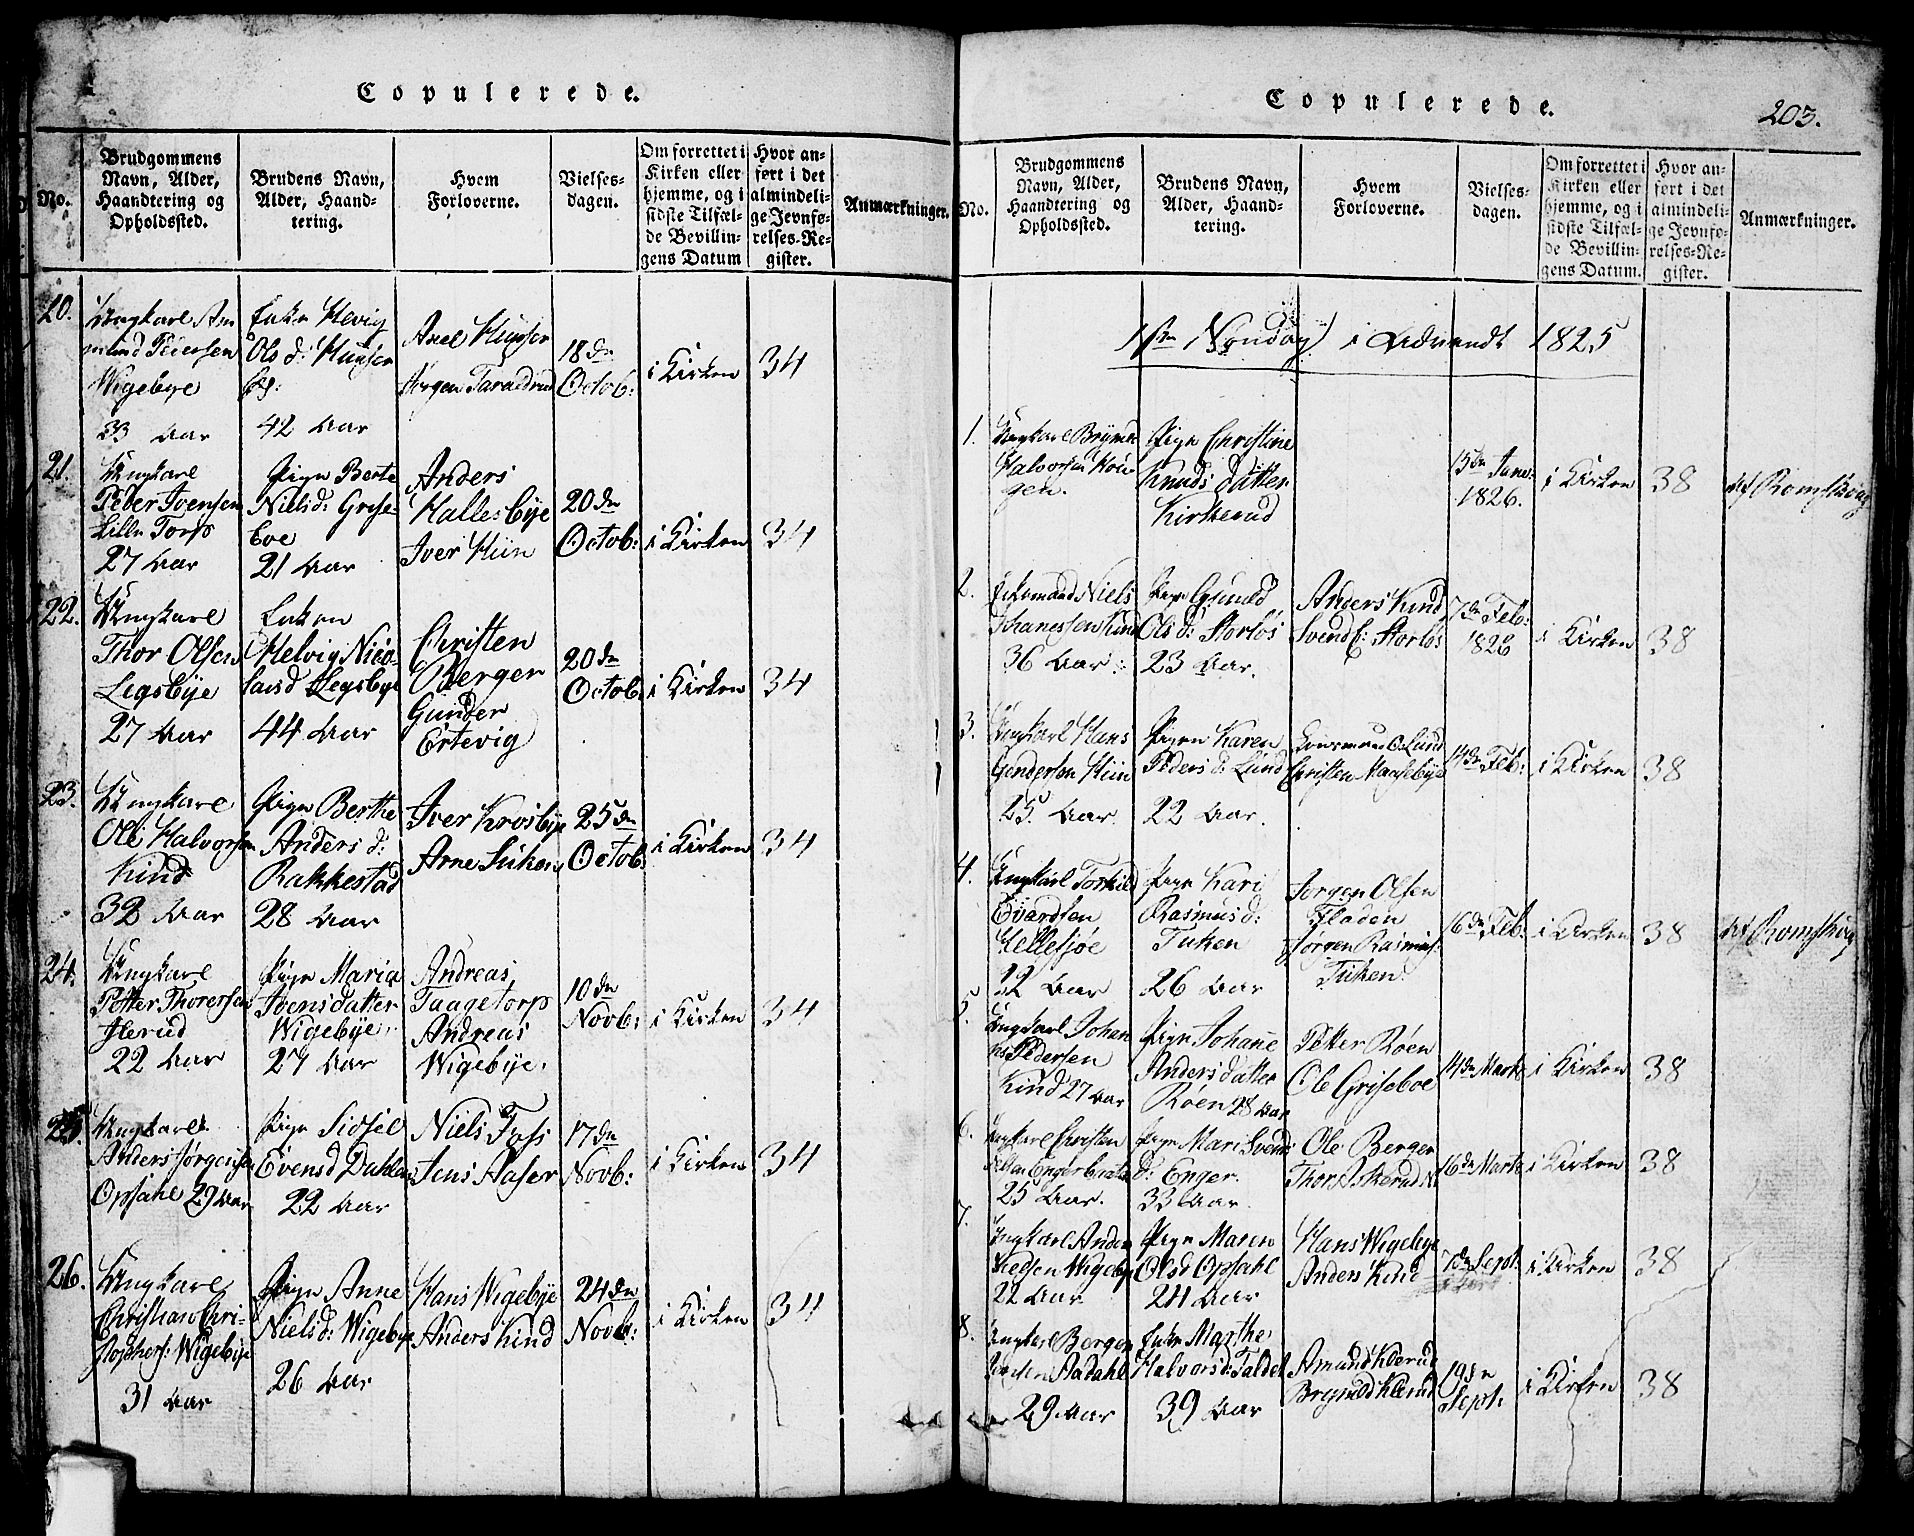 Copulerede.
No.
Brudgommens
Navn, Alder,
Haandtering og
Opholdssted.
Brudens Navn,
Alder, Haand-
tering.
Hvem
Forloverne.
Vielses-
dagen.
Om forrettet i
Kirken eller
hjemme, og i
sidste Tilfæl-
de Bevillin-
gens Datum
Hvor an-
ført i det
almindeli-
ge Jevnfø-
relses-Re-
gister.
Anmærkninger.
20.
Ungkarl Am
mund Pedersen
Wigebye
33 Aar
Enke Hevig
Ols d: Huuser
42 Aar
Axel Huuser
Jørgen Taraldrud
18de
Octob:
i Kirken
34
21.
Ungkarl
Peder Svensen
Lille Torp
27 Aar
Pige Berte
Niels d: Grise-
boe
21 Aar
Anders
Hallesbye
Iver Hiin
20de
Octob:
i Kirken
34
22.
Ungkarl
Thor Olsen
Legsbye
27 Aar
Enken
Helvig Nico-
laisd Legsbye
44 Aar
Christen
Berger
Gunder
Ertevig
20de
Octob:
i Kirken
34
23.
Ungkarl
Ole Halvorsen
Kind
32 Aar
Pige Berthe
Anders d:
Rakkestad
28 Aar
Iver Krosbye
Arne Tuken
25de
Octob:
i Kirken
34
24.
Ungkarl
Petter Thorersen
22 Aar
Pige Maria
Svensdatter
Wigebye
27 Aar
Andreas
Taagetorp
Andreas
Wigebye.
10de
Novb:
i Kirken
34
25.
Ungkarl
Anders Jørgensen
Opsahl 29 Aar
Pige Sidsel
Evensd Dahlen
22 Aar
Niels Foss
Jens Aaser
17de
Novb:
i Kirken
34
26.
Ungkarl
Christian Chri-
stophers: Wigebye
31 Aar
Pige Anne
Niels d: Wigebye
26 Aar
Hans Wigebye
Anders Kind
24de
Novb:
i Kirken
34
Copulerede.
203.
No.
Brudgommens
Navn, Alder,
Haandtering og
Opholdssted.
Brudens Navn,
Alder, Haand-
tering.
Hvem
Forloverne.
Vielses-
dagen.
Om forrettet i
Kirken eller
hjemme, og i
sidste Tilfæl-
de Bevillin-
gens Datum.
Hvor an-
ført i det
almindeli-
ge Jevnfø-
relses-Re-
gister.
Anmærkninger.
1ste Søndag i Advendt 1825
1.
Ungkarl
Halvorsen Hou-
gen.
Pige Christine
Knuds datter
Kirkerud
15de Janr:
1826.
i Kirken
38
af Romskoug
2.
Enkemand Niels
Johanessen Kind
36 Aar
Pige Gunild
Ols d: Storløs
23 Aar.
Anders Kind
Svend E: Storløs
7de Feb:
1826
i Kirken
38
3.
Ungkarl Hans
Gundersen Hiin
25. Aar
Pigen Karen
Peders d: Lund
22 Aar.
Lund
Christen Haasebye
14de Feb:
i Kirken
38
4.
Ungkarl Torkild
Evardsen
Hellesjøe
22 Aar
Pige Kari
Rasmus d:
Tuken
26 Aar
Jørgen Olsen
Fladen
Jørgen Rasmus:
Tuken
16de Feb:
i Kirken
38
af Romskoug
5.
Ungkarl Johan
nes Pedersen
Kind 27 Aar
Pige Johane
Anders datter
Roen 28 Aar
Petter Roen
Ole Griseboe
14de Marts
i Kirken
38
6.
Ungkarl Christen
25 Aar.
Pige Mari Svends
d: Enger.
33 Aar
Ole Berger
Thor Askerud
16de Marts
i Kirken
38
7.
Ungkarl Anders
Nielsen Wigebye
22 Aar
Pige Maren
Olsd Opsahl
24 Aar
Hans Wigebye
Anders Kind
7de Sept.
i Kirken
38
8.
Ungkarl Berger
Aadahl
29 Aar
Enke Marthe
Halvorsd: Taldel
39 Aar
Amund Kilerud
Kilerud
19de
Sept.
i Kirken
38